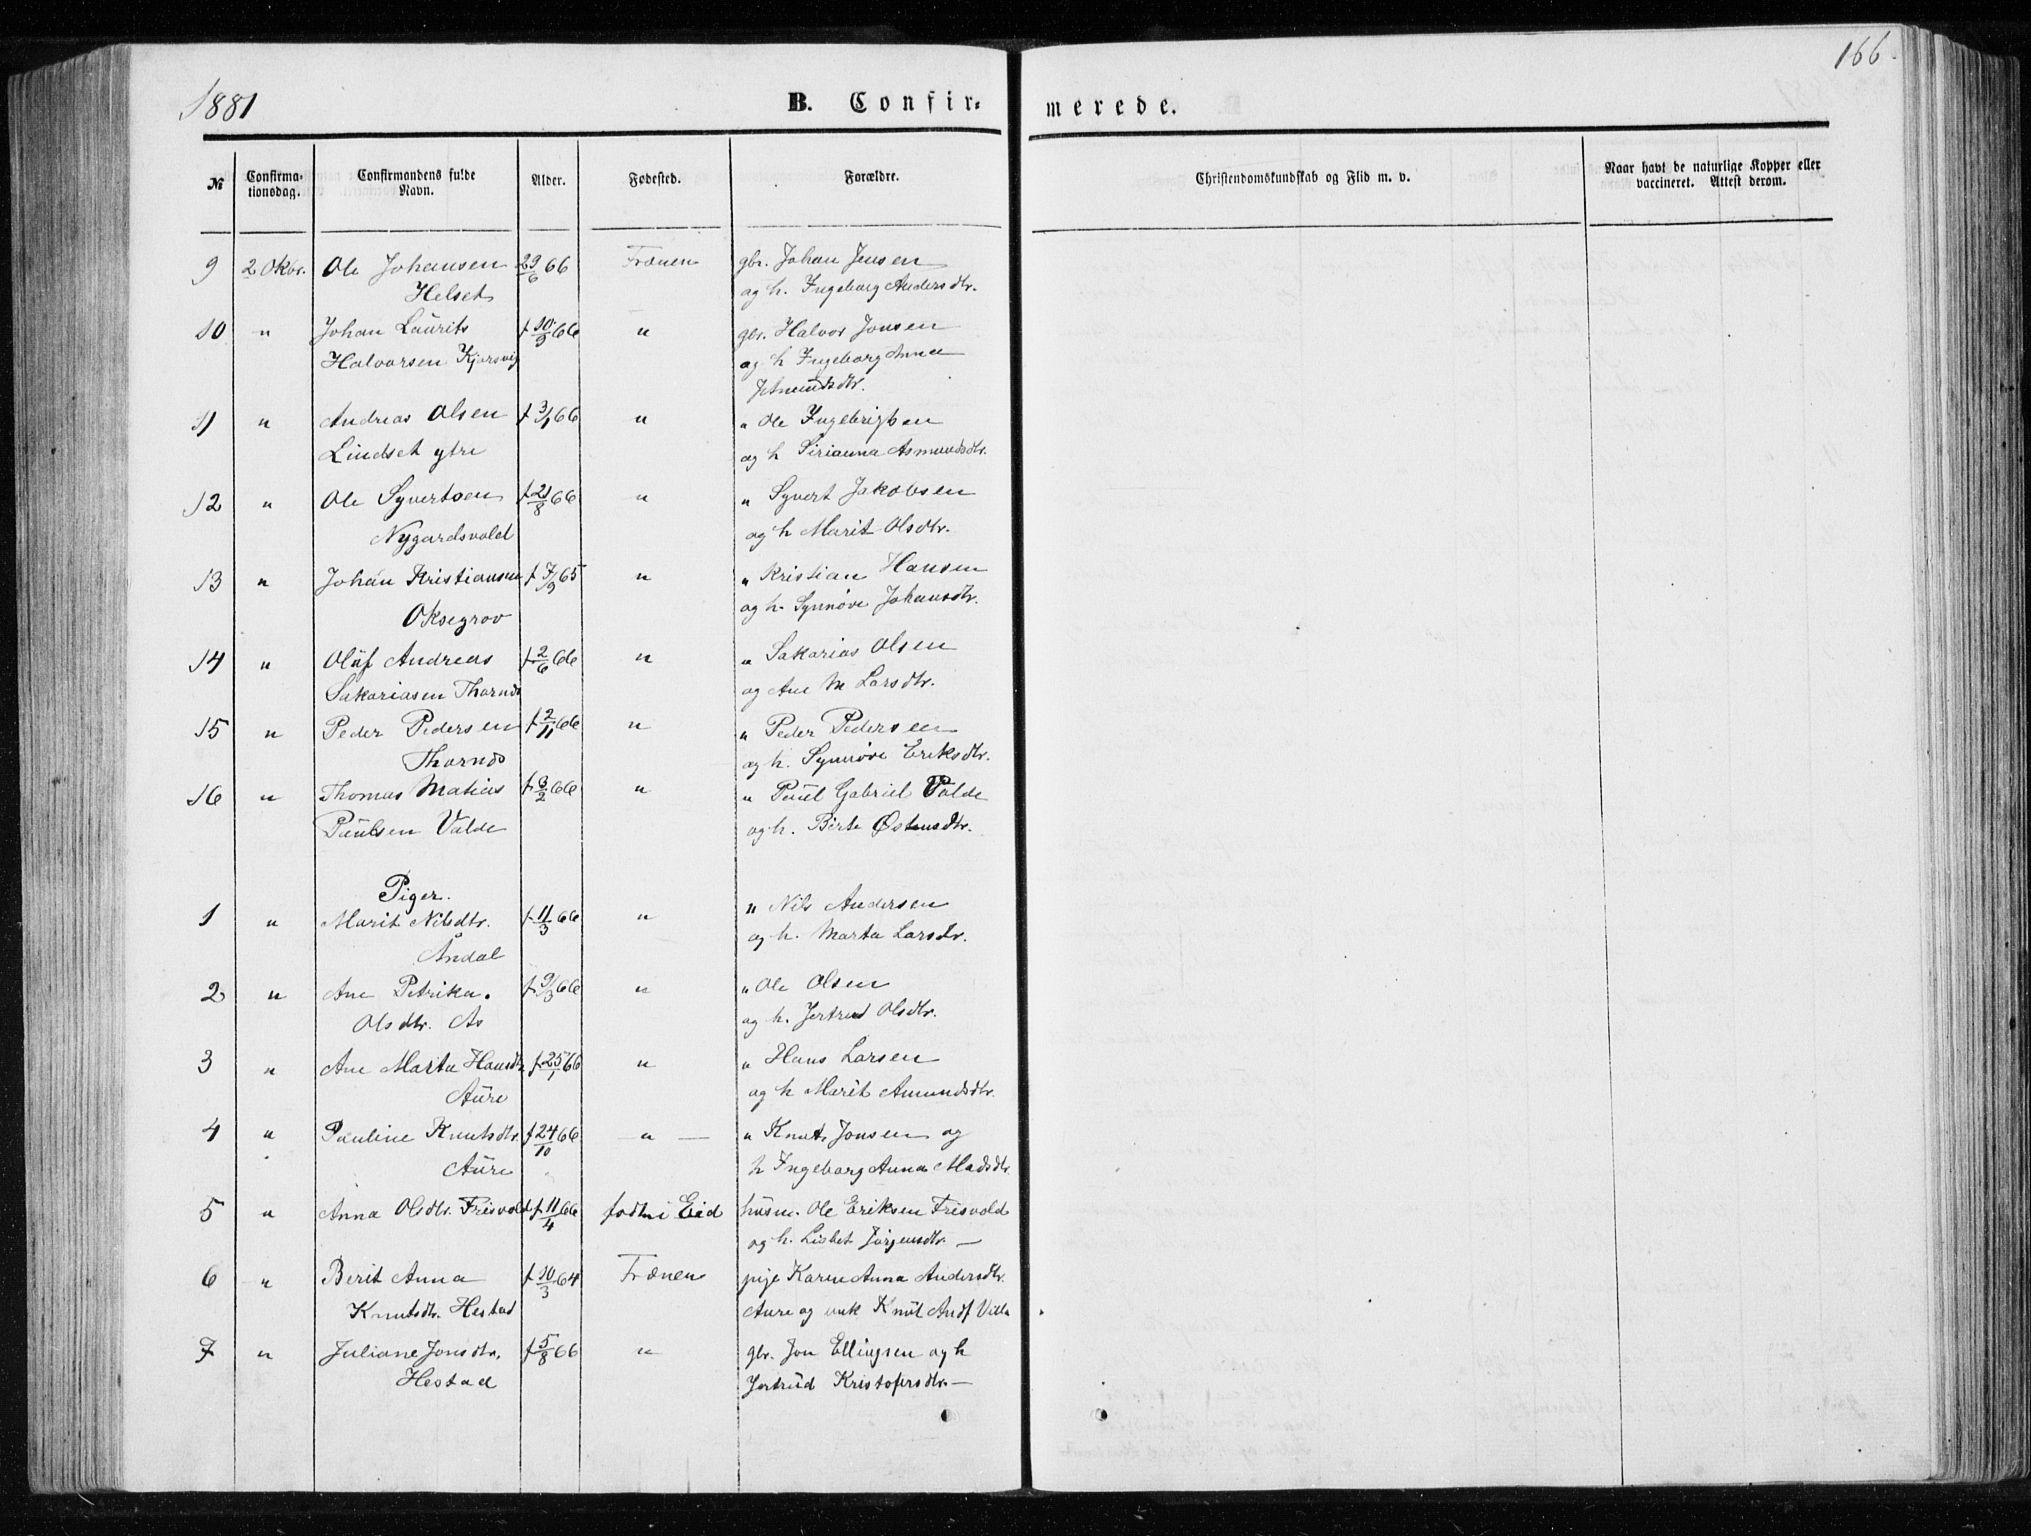 1881
B. Confir-
merede.
166.
№
Confirma-
tionsdag.
Confirmandens fulde
Navn.
Alder.
Fødested.
Forældre.
Christendomskundskab og Flid m. v.
Naar havt de naturlige Kopper eller
vaccineret. Attest derom.
9 2 Okbr. Ole Johansen 29/6 66 Frænen gbr. Johan Jensen
Helset og h. Ingeborg Andersdtr.
10 " Johan Laurits f 10/9 66 " gbr. Halvor Jonsen
Halvorsen Kjørsvig og h Ingeborg Anna
Amundsdtr.
11 " Andreas Olsen f 3/1 66 " " Ole Ingebrigtsen
Lindset ytre og h Sirianna Asmundsdtr.
12 " Ole Syvertsen f 21/8 66 " " Syvert Jakobsen
Nygardsvold og h Marit Olsdtr.
13 " Johan Kristiansen f 7/9 65 " " Kristian Hansen
Oksegrov og h. Synnøve Johansdtr.
14 " Oluf Andreas f 2/6 66 " " Sakarias Olsen
Sakariasen Thornds og Ane M Larsdtr.
15 " Peder Pedersen f 2/11 66 " " Peder Pedersen
Thornds og h. Synnøve Eriksdtr.
16 " Thomas Matias f 3/2 66 " " Paul Gabriel Valde
Paulsen Valde og h. Birte Østensdtr.
Piger.
1 " Marit Nilsdtr. f 11/3 66 " " Nils Andersen
Åndal og h. Marta Larsdtr.
2 " Ane Petrika. f 9/3 66 " " Ole Olsen
Olsdtr. As og h. Jertrud Olsdtr.
3 " Ane Marta Hansdtr f 25/1 66 " " Hans Larsen
Aure og h Marit Amundsdtr.
4 " Pauline Knutsdtr. f 24/10 66 — " — " Knut Jonsen og
Aure h Ingeborg Anna Madsdtr.
5 " Anna Olsdtr. Frisvold f 11/4 66 født i Eid husm. Ole Eriksen Frisvold
og h. Lisbet Jørgensdtr. —
6 " Berit Anna f 10/3 64 Frænen pige Karen Anna Andersdtr.
Knutsdtr. Hestad Aure og unk Knut Andf Villa
7 " Juliane Jonsdtr. f 5/8 66 " gbr. Jon Ellingsen og h
Hestad Jertrud Kristofersdtr. —